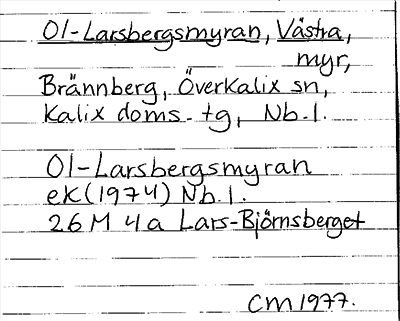 Ol-Larsbergsmyran, Västra,
myr,
Brännberg, Överkalix sn,
Kalix doms. tg, Nb. l.
Ol-Larsbergsmyran
ek (1974) Nb. l.
26 M 4a Lars-Björnsberget
CM 1977.